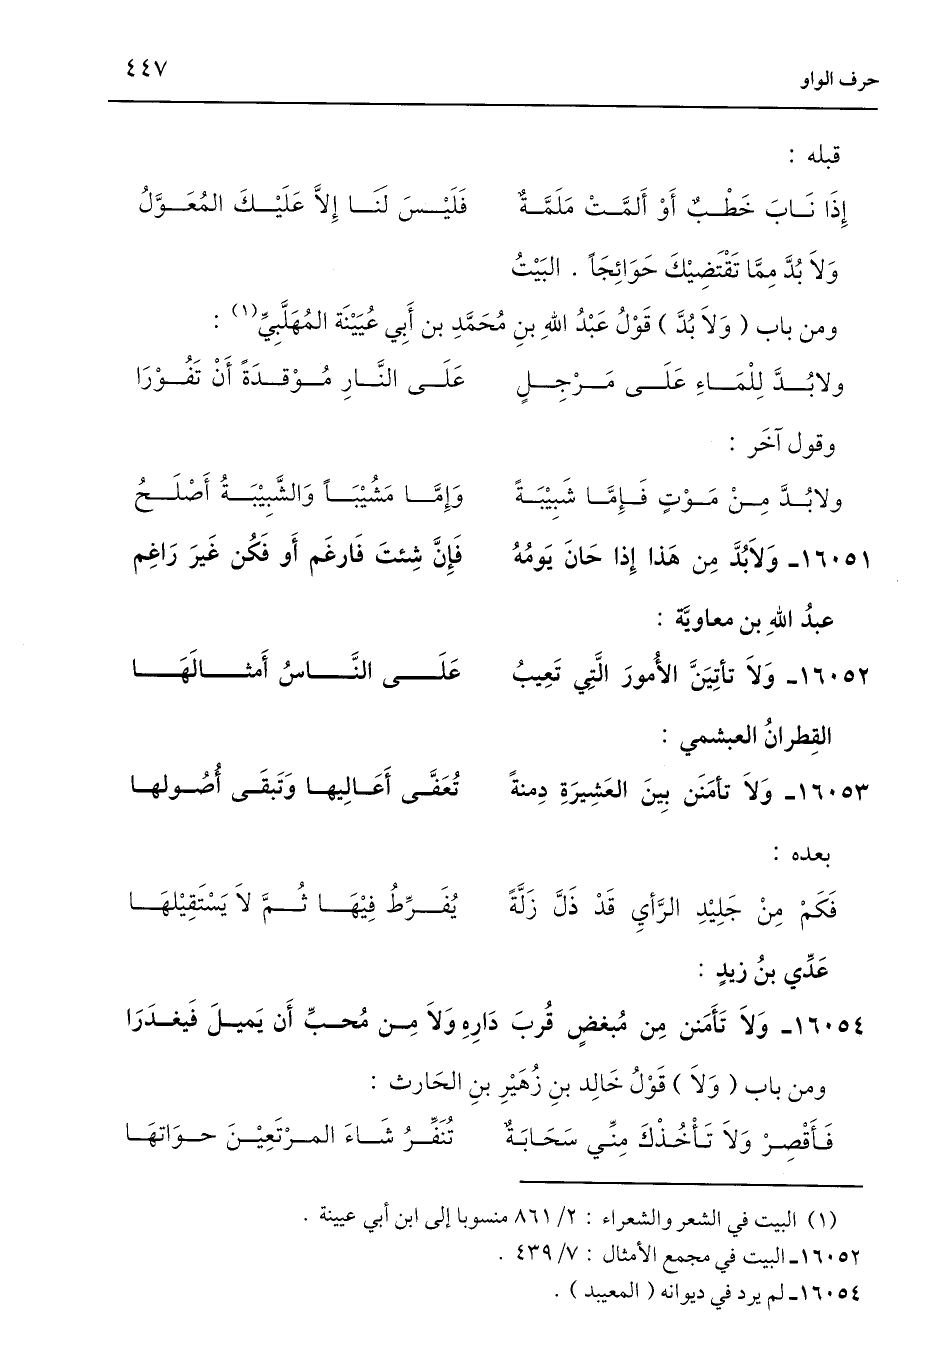 حرف الواو ٤٤٧
قبله :
إِذَا نَـابَ خَطْـبٌ أَوْ أَلمَّـتْ مَلَمَّـةٌ فَلَيْـسَ لَنَـا إِلاَّ عَلَيْـكَ المُعَـوَّلُ
وَلاَ بُدَّ مِمَّا تَقْتَضِيْكَ حَوَائِجَاً . البَيْتُ
ومن باب ( وَلاَ بُدَّ ) قَوْلُ عَبْدُ اللهِ بنِ مُحَمَّدِ بن أَبي عُيَيْنَة المُهَلَّبِيِّ(١) :
ولابُـدَّ لِلْمَـاءِ عَلَـى مَـرْجِـلٍ عَلَـى النَّـارِ مُـوْقـدَةً أَنْ تَفُـوْرَا
وقول آخَر :
ولابُـدَّ مِـنْ مَـوْتٍ فَـإِمَّـا شَبِيْبَـةً وَإِمَّـا مَشُيْبَـاً وَالشَّبِيْبَـةُ أَصْلَـحُ
١٦٠٥١ـ وَلاَبُدَّ مِن هَذا إِذا حَانَ يَومُهُ فَإِنَّ شِئتَ فَارغَم أَو فَكُن غَيرَ رَاغِم
عبدُ اللهِ بن معاويَّة :
١٦٠٥٢ـ وَلاَ تأتِيَنَّ الأُمورَ الَّتِي تَعِيبُ عَلَـى النَّـاسُ أَمثـالَهَـا
القِطرانُ العبشمي :
١٦٠٥٣ـ وَلاَ تأمَنَن بِينَ العَشِيرَةِ دِمنةً تُعَفَّى أَعَـالِيها وَتَبقَـى أُصُـولها
بعده :
فَكَمْ مِنْ جَلِيْدِ الرَّأيِ قَدْ ذَلَّ زَلَّةً يُفَـرِّطُ فِيْهَـا ثُـمَّ لاَ يَسْتَقِيْلهَـا
عَدِّي بنُ زيدٍ :
١٦٠٥٤ـ وَلاَ تَأَمَنن مِن مُبغضٍ قُربَ دَارِهِ وَلاَ مِـن مُحـبِّ أَن يَميـلَ فَيغـدَرَا
ومن باب ( وَلاَ ) قَوْلُ خَالِد بنِ زُهَيْرِ بنِ الحَارث :
فَـأَقْصِـرْ وَلاَ تَـأْخُـذْكَ مِنِّـي سَحَابَـةٌ تُنَفِّـرُ شَـاءَ المـرْتَعِيْـنَ حـوَاتهَـا
(١) البيت في الشعر والشعراء : ٢/ ٨٦١ منسوبا إلى ابن أبي عيينة .
١٦٠٥٢ـ البيت في مجمع الأمثال : ٧/ ٤٣٩ .
١٦٠٥٤ـ لم يرد في ديوانه ( المعيبد ) .